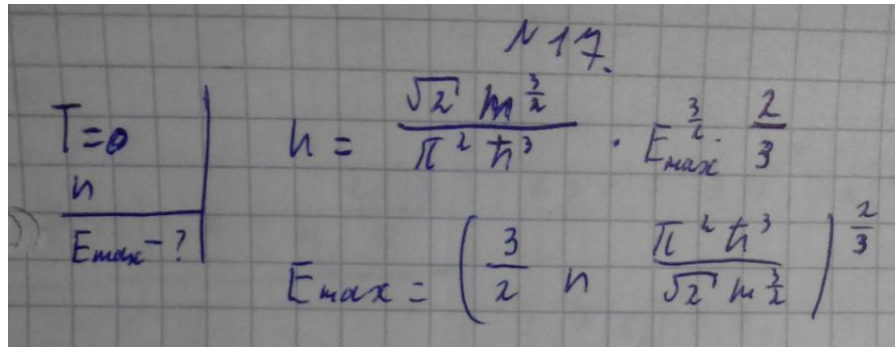 N 17.
T=0
n
Emax - ?
n = √2 m^(3/2) / (π² ħ³) · Emax^(3/2) · 2/3
Emax = (3/2 n π² ħ³ / (√2 m^(3/2)))^(2/3)